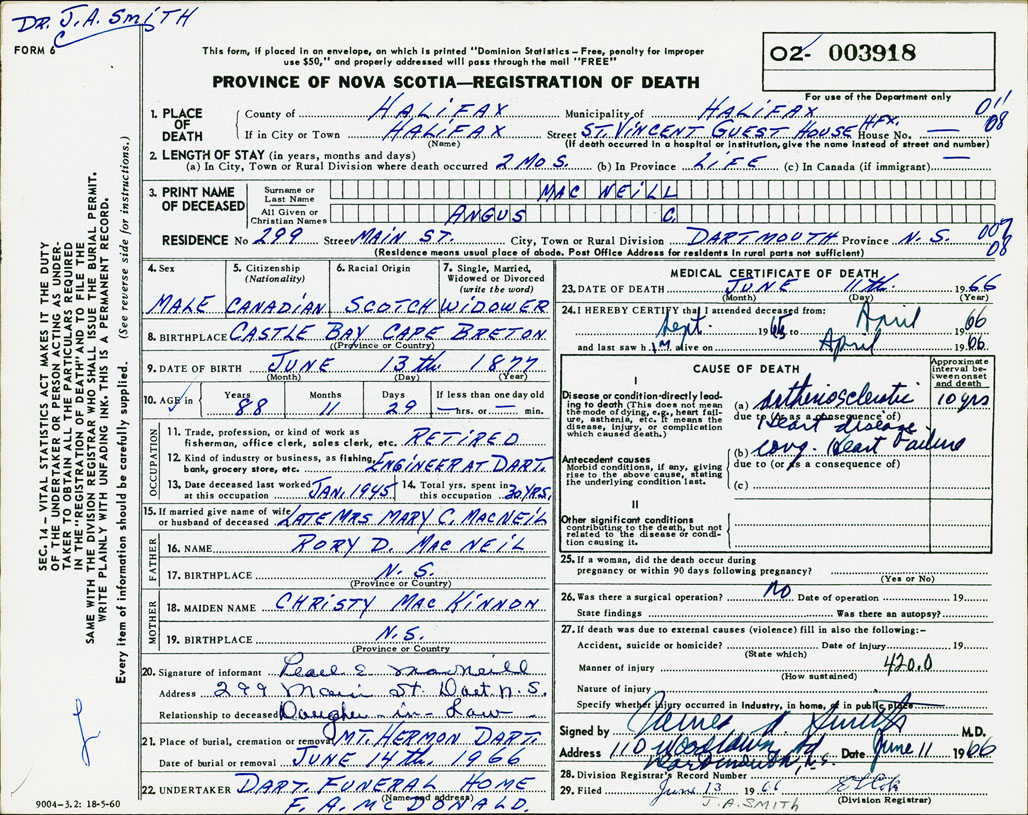 DR. J.A. SMITH
FORM 6
This form, if placed in an envelope, on which is printed "Dominion Statistics – Free, penalty for improper
use $50," and properly addressed will pass through the mail "FREE"
02- 003918
PROVINCE OF NOVA SCOTIA—REGISTRATION OF DEATH
For use of the Department only
1. PLACE OF DEATH County of HALIFAX Municipality of HALIFAX 011
If in City or Town HALIFAX Street ST. VINCENT GUEST HOUSE HFX. House No. — 08
(Name) (If death occurred in a hospital or institution, give the name instead of street and number)
2. LENGTH OF STAY (in years, months and days)
(a) In City, Town or Rural Division where death occurred 2 MOS. (b) In Province LIFE (c) In Canada (if immigrant) —
3. PRINT NAME OF DECEASED Surname or Last Name MAC NEILL
All Given or Christian Names ANGUS C.
RESIDENCE No 299 Street MAIN ST. City, Town or Rural Division DARTMOUTH Province N.S. 007 08
(Residence means usual place of abode. Post Office Address for residents in rural parts not sufficient)
4. Sex 5. Citizenship (Nationality) 6. Racial Origin 7. Single, Married, Widowed or Divorced (write the word)
MALE CANADIAN SCOTCH WIDOWER
8. BIRTHPLACE CASTLE BAY CAPE BRETON
(Province or Country)
9. DATE OF BIRTH JUNE 13th 1877
(Month) (Day) (Year)
10. AGE in: Years Months Days If less than one day old
88 11 29 — hrs. or — min.
OCCUPATION
11. Trade, profession, or kind of work as
fisherman, office clerk, sales clerk, etc. RETIRED
12. Kind of industry or business, as fishing,
bank, grocery store, etc. ENGINEER AT DART.
13. Date deceased last worked at this occupation JAN. 1945 14. Total yrs. spent in this occupation 30 YRS.
15. If married give name of wife
or husband of deceased LATE MRS MARY C. MACNEIL
FATHER
16. NAME RORY D. MAC NEIL
17. BIRTHPLACE N.S.
(Province or Country)
MOTHER
18. MAIDEN NAME CHRISTY MAC KINNON
19. BIRTHPLACE N.S.
(Province or Country)
20. Signature of informant Pearl E. MacNeill
Address 299 Main St. Dart N.S.
Relationship to deceased Daughter-in-Law
21. Place of burial, cremation or removal MT. HERMON DART.
Date of burial or removal JUNE 14th, 1966
22. UNDERTAKER DART. FUNERAL HOME
(Name and address)
F. A. McDONALD.
MEDICAL CERTIFICATE OF DEATH
23. DATE OF DEATH JUNE 11th. 1966
(Month) (Day) (Year)
24. I HEREBY CERTIFY that I attended deceased from:
Sept. 1965 to April 66
and last saw him alive on April 1966.
CAUSE OF DEATH Approximate interval between onset and death
I
Disease or condition directly leading to death (This does not mean
the mode of dying, e.g., heart failure, asthenia, etc. It means the
disease, injury, or complication
which caused death.)
(a) arthiosclerotic 10 yrs
due to (or as a consequence of)
Heart disease
Antecedent causes
Morbid conditions, if any, giving
rise to the above cause, stating
the underlying condition last.
(b) cong. Heart Failure
due to (or as a consequence of)
(c)
II
Other significant conditions
contributing to the death, but not
related to the disease or condition
causing it.
25. If a woman, did the death occur during
pregnancy or within 90 days following pregnancy?
(Yes or No)
26. Was there a surgical operation? NO Date of operation 19
State findings Was there an autopsy?
27. If death was due to external causes (violence) fill in also the following:—
Accident, suicide or homicide? Date of injury 19
(State which)
Manner of injury 420.0
(How sustained)
Nature of injury
Specify whether injury occurred in Industry, in home, or in public place
Signed by James A. Smith M.D.
Address 110 Woodlawn Rd Dartmouth, N.S. Date June 11 1966
28. Division Registrar's Record Number
29. Filed June 13 1966
(Division Registrar)
J.A. SMITH
SEC. 14 – VITAL STATISTICS ACT MAKES IT THE DUTY
OF THE UNDERTAKER OR PERSON ACTING AS UNDERTAKER
TO OBTAIN ALL THE PARTICULARS REQUIRED
IN THE "REGISTRATION OF DEATH" AND TO FILE THE
SAME WITH THE DIVISION REGISTRAR WHO SHALL ISSUE THE BURIAL PERMIT.
WRITE PLAINLY WITH UNFADING INK. THIS IS A PERMANENT RECORD.
Every item of information should be carefully supplied. (See reverse side for instructions.)
9004–3.2: 18-5-60